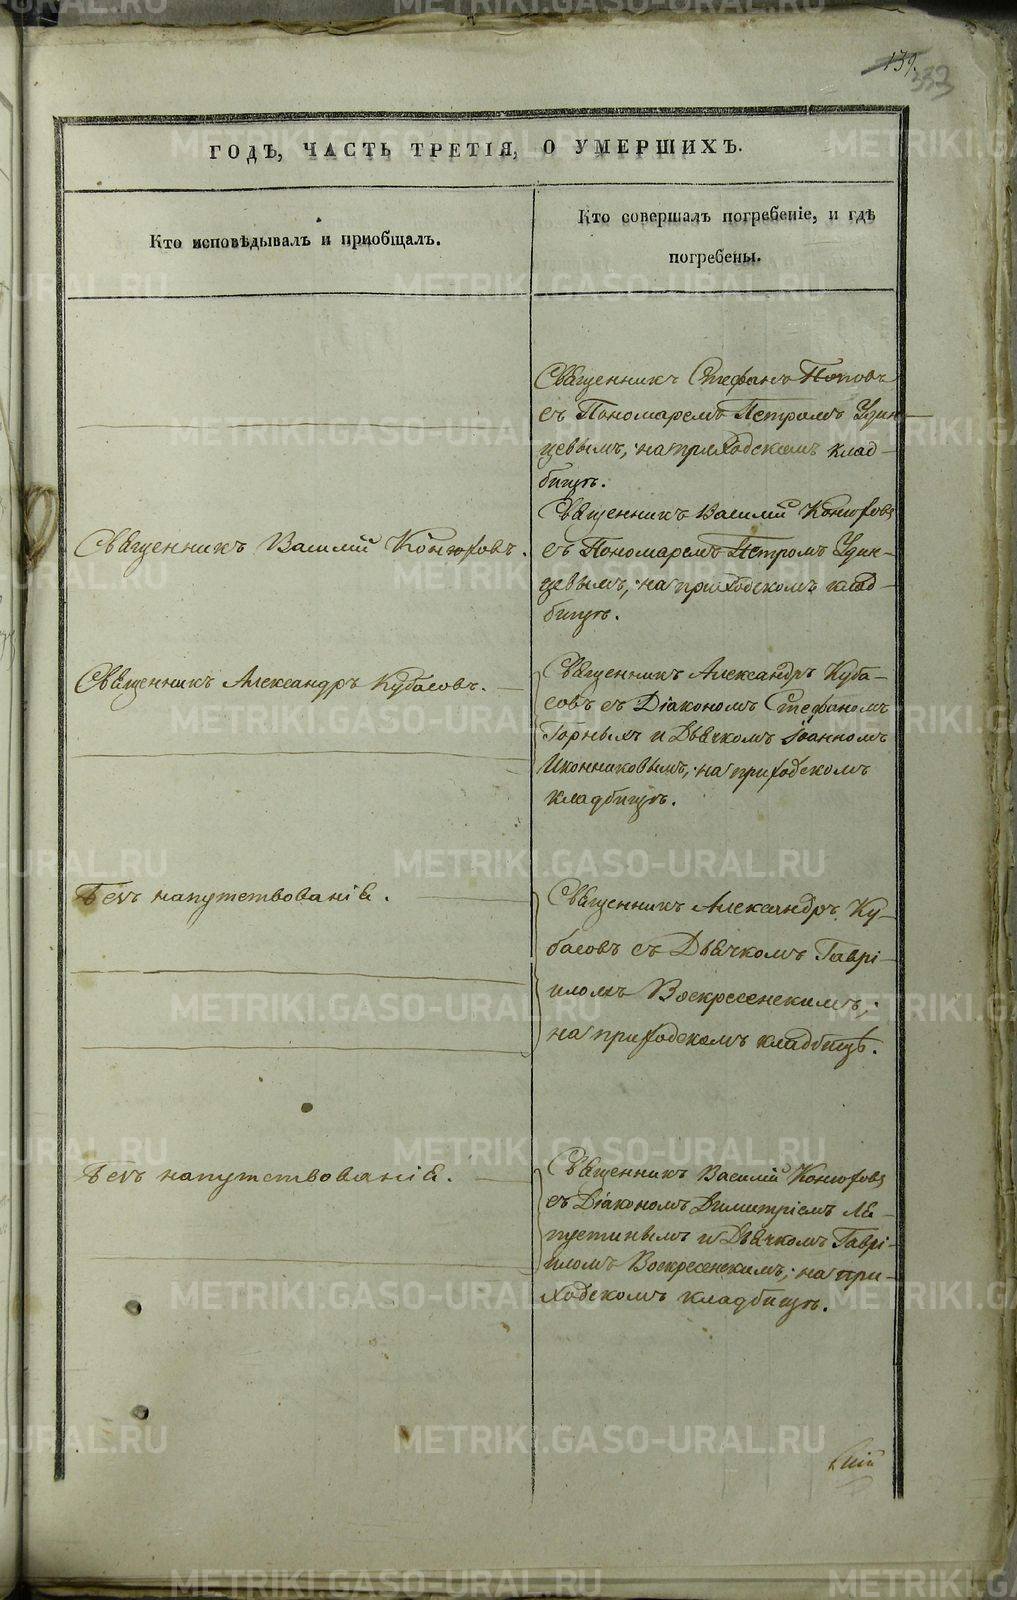 139.
333
ГОДЪ, ЧАСТЬ ТРЕТІЯ, О УМЕРШИХЪ.
Кто исповѣдывалъ и приобщалъ.
Кто совершалъ погребеніе, и гдѣ
погребены.
Священникъ Стефанъ Поповъ
съ Пономаремъ Петромъ Удин-
цевымъ, на приходскомъ клад-
бищѣ.
Священникъ Василій Конюховъ.
Священникъ Василій Конюховъ
съ Пономаремъ Петромъ Удин-
цевымъ, на приходскомъ клад-
бищѣ.
Священникъ Александръ Кубасовъ.
Священникъ Александръ Куба-
совъ съ Діакономъ Стефаномъ
Горнымъ и Дьячкомъ Іоанномъ
Иконниковымъ, на приходскомъ
кладбищѣ.
Безъ напутствованія.
Священникъ Александръ Ку-
басовъ съ Дьячкомъ Гаврі-
иломъ Воскресенскимъ,
на приходскомъ кладбищѣ.
Безъ напутствованія.
Священникъ Василій Конюховъ
съ Діакономъ Димитріемъ Ле-
пустинымъ и Дьячкомъ Гаврі-
иломъ Воскресенскимъ, на при-
ходскомъ кладбищѣ.
METRIKI.GASO-URAL.RU